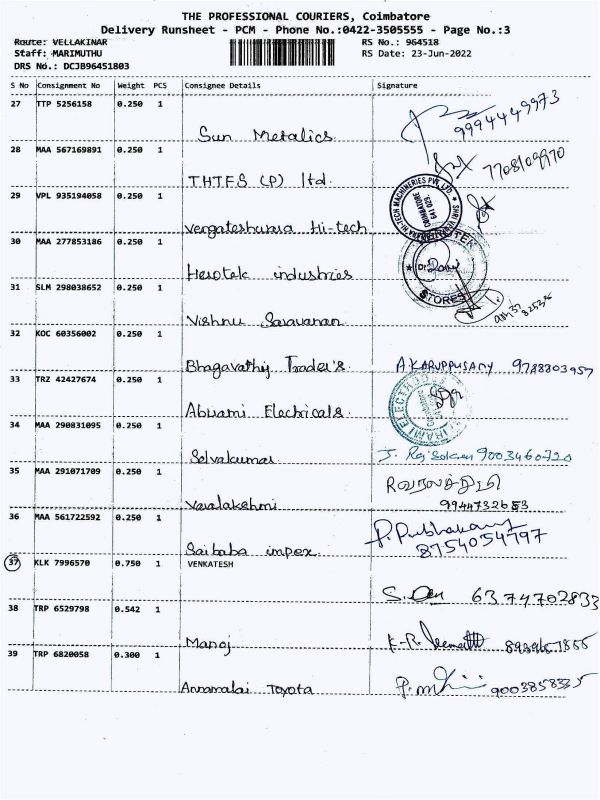 THE PROFESSIONAL COURIERS, Coimbatore
Delivery Runsheet - PCM - Phone No.:0422-3505555 - Page No.:3
Route: VELLAKINAR RS No.: 964518
Staff: MARIMUTHU RS Date: 23-Jun-2022
DRS No.: DCJB96451803
S No Consignment No Weight PCS Consignee Details Signature
27 TTP 5256158 0.250 1
Sun Metalics 9994449973
28 MAA 567169891 0.250 1
THTFS (P) ltd. 7708109970
29 VPL 935194058 0.250 1
Vengateshwara Hi-tech
30 MAA 277853186 0.250 1
Herotek industries
STORES
31 SLM 298038652 0.250 1
Vishnu Saravanan
32 KOC 60356002 0.250 1
Bhagavathy Trader's A KARUPPUSAMY 9788803957
33 TRZ 42427674 0.250 1
Abirami Electricals
34 MAA 290831095 0.250 1
Selvakumar 9003460720
35 MAA 291071709 0.250 1
Varalakshmi 9944732653
36 MAA 561722592 0.250 1
Saibaba impex 8754054797
37 KLK 7996570 0.750 1 VENKATESH
6374702833
38 TRP 6529798 0.542 1
Manoj
39 TRP 6820058 0.300 1
Annamalai Toyota 9003858335